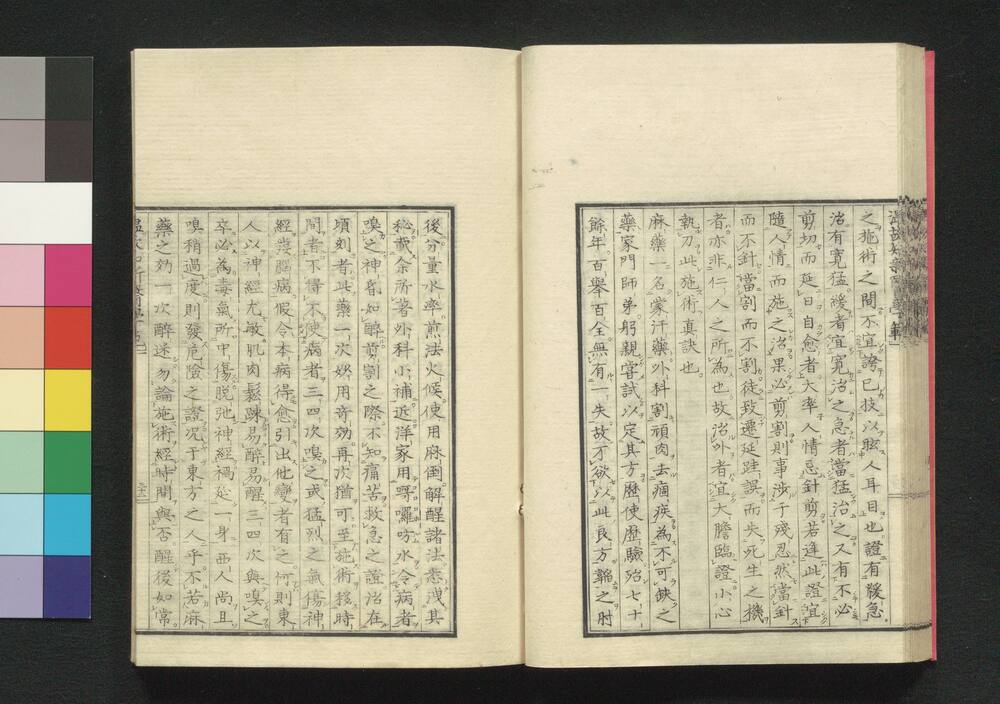 之施術之間不宜誇己技以眩人耳目也證有緩急
治有寬猛緩者宜寬治之急者當猛治之又有不必
剪切而延日自愈者大率人情忌針剪若逢此證宜
隨人情而施之治果必剪割則事涉于殘忍然當針
而不針當割而不割徒致遷延跬誤而失死生之機
者亦非仁人之所為也故治外者宜大膽臨證小心
執刀此施術真訣也
麻藥一名蒙汗藥外科割頑肉去痼疾為不可缺之
藥家門師弟躬親嘗試以定其方歷使歷驗殆七十
餘年百舉百全無有一失故不欲以此良方韜之肘
後分量水率煎法火候使用麻倒解醒諸法悉洩其
秘載余所著外科小補近洋家用嘚囉吩水令病者
嗅之神身如醉剪割之際不知痛苦救急之證治在
頃刻者此藥一次妙用奇効再次猶可至施術移時
間者不得不使病者三四次嗅之或猛烈之氣傷神
經發腦病假令本病得愈引出他變者有之何則東
人以神經尤敏肌肉鬆踈易醉易醒三四次與嗅之
卒必為毒氣所中傷脱弛神經禍延一身西人尚且
嗅稍過度則發危險之證况于東方之人乎不若麻
藥之効一次醉迷勿論施術經時間與否醒後如常